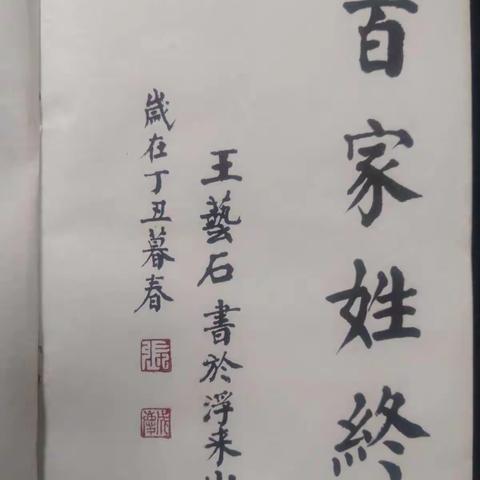 百家姓終
王藝石書於浮来山
歲在丁丑暮春
張